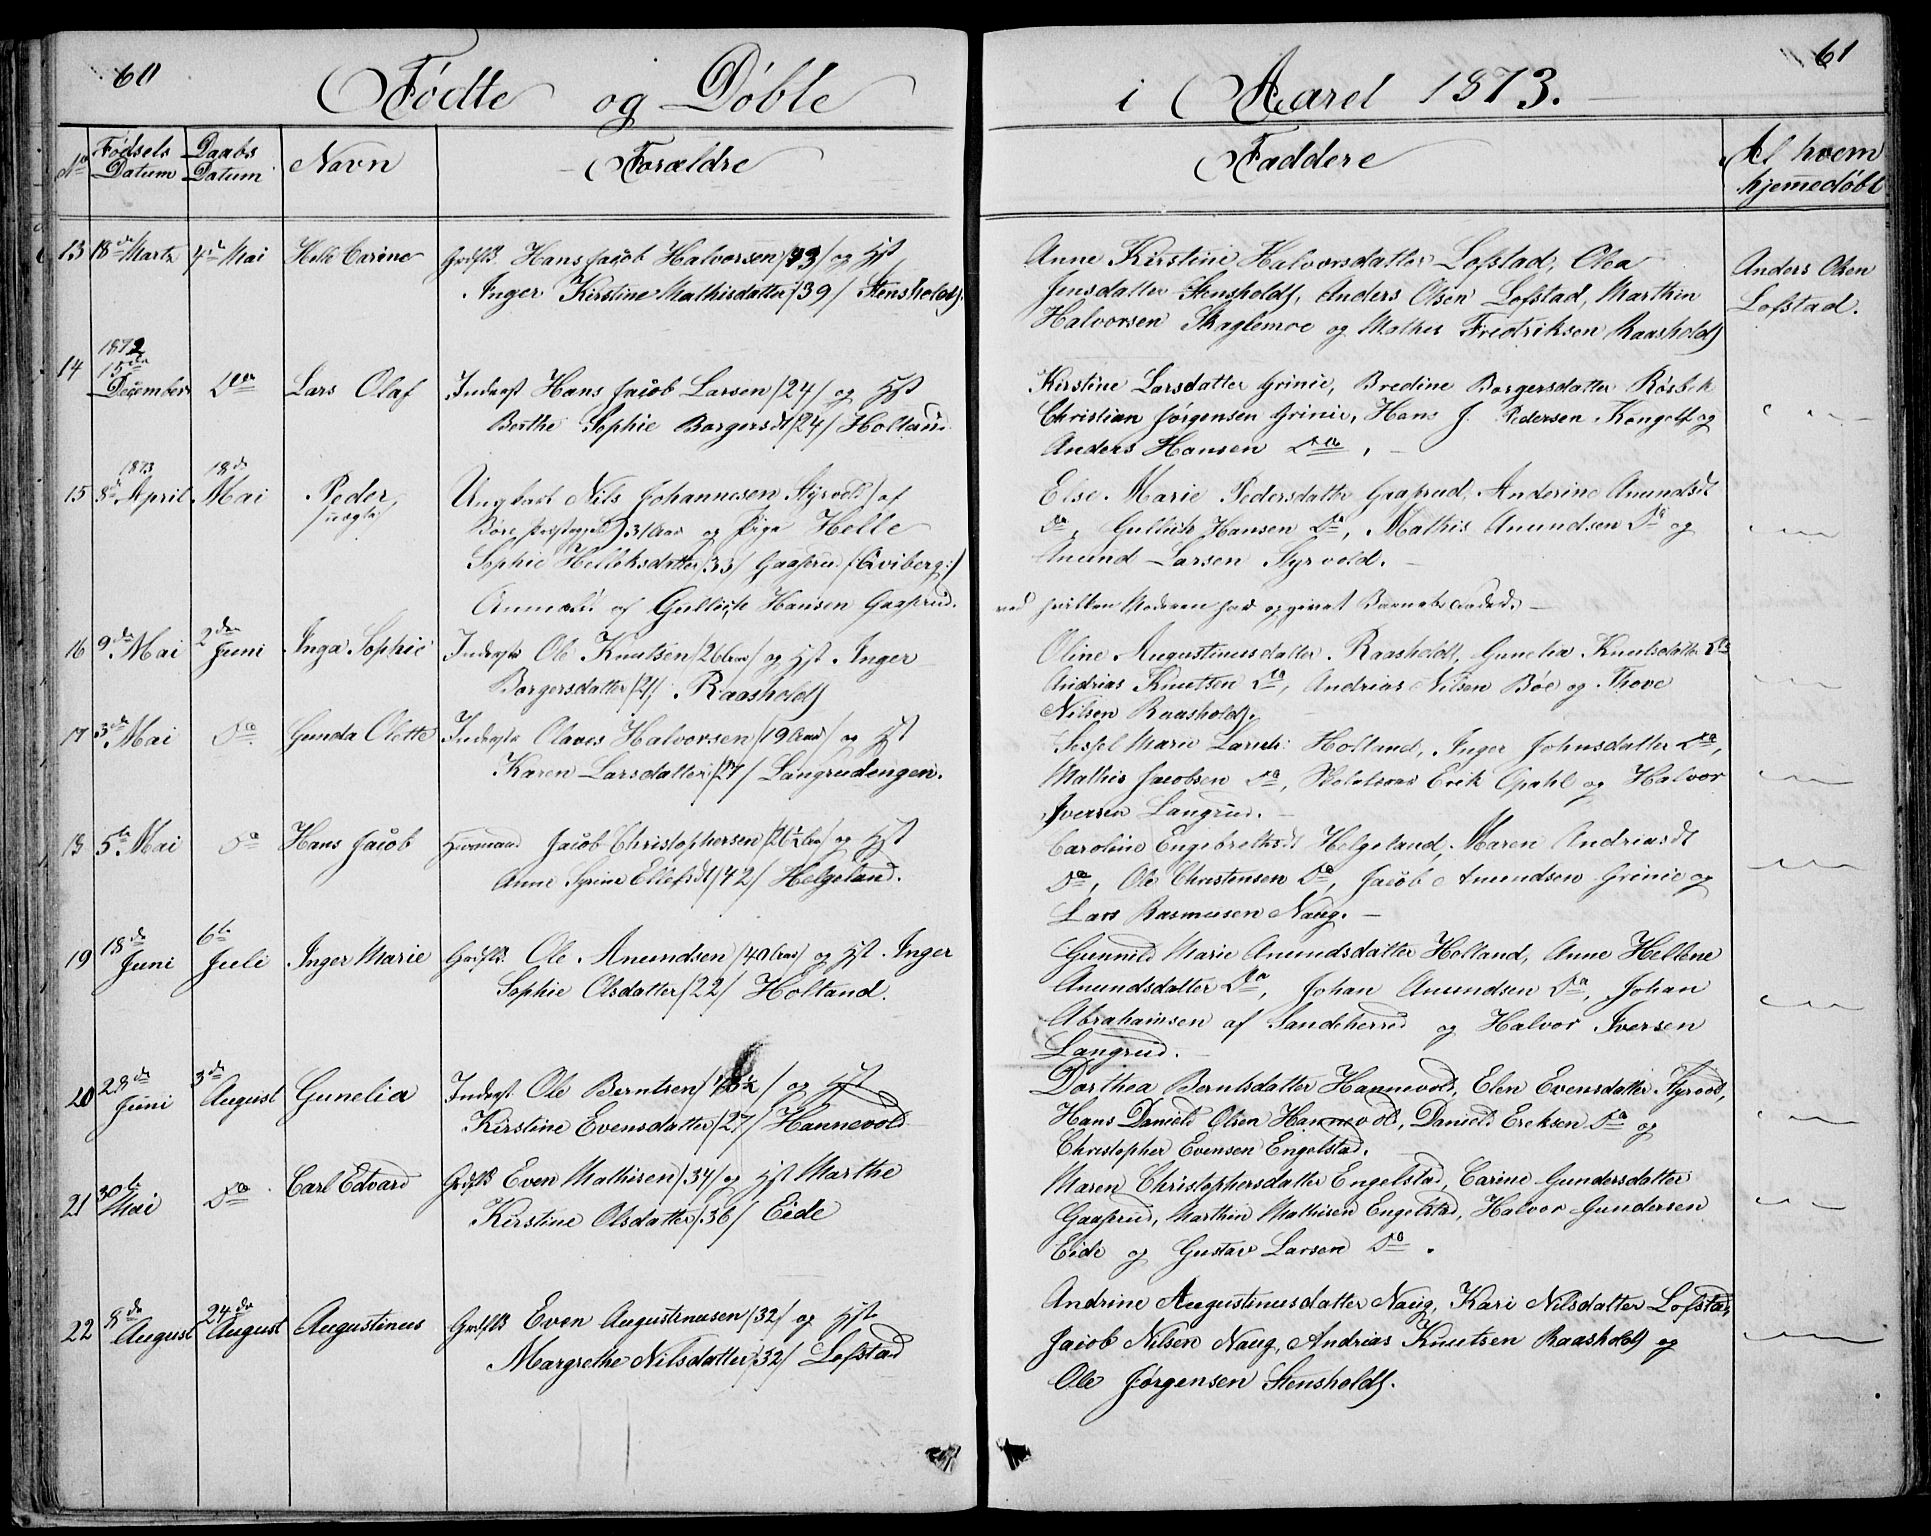 60
Fødte og Døbte
No
Fødsels Datum
Daabs Datum
Navn
Forældre
13 18de Marts 4de Mai Helle Carine Grdsb. Hans Jacob Halvorsen /43/ og Hst
Inger Kirstine Mathisdatter /39/ Stensholdt.
14 1872 15de December Do Lars Olaf Inderst Hans Jacob Larsen /24/ og Hst
Berthe Sophie Borgersdt /24/ Holtand
15 1873 8de April 18de Mai Peder /uægte/ Ungkarl Nils Johannesen Styrvold af
31 Aar og Pige Helle
Sophie Helleksdatter /33/ Gaaserud (Qviberg)
Anmeldt af Gullich Hansen Gaaserud.
16 9de Mai 2den Juni Inga Sophie Inderst Ole Knutsen /26 Aar/ og Hst. Inger
Borgersdatter /21/. Raasholdt
17 3de Mai Do Gunda Olette Inderst Olaves Halvorsen /19 Aar/ og Hst
Karen Larsdatter /27/ Langrudengen.
18 5te Mai Do Hans Jacob Huusmand Jacob Christophersen /26½ Aar/ og Hst
Anne Syrine Ellefsdt /42/ Helgeland.
19 18de Juni 6te Juli Inger Marie Grdsb. Ole Anundsen /40 Aar/ og Hst. Inger
Sophie Olsdatter /22/ Holtand.
20 28de Juni 3de August Gunelia Inderst Ole Berntsen og Hst
Kirstine Evensdatter /27/ Hannevold
21 30te Mai Do Carl Edvard Grdsb Even Mathisen /34/ og Hst Marthe
Kirstine Olsdatter /36/ Eide
22 8de August 24de August Augustinus Grdsb Even Augustinusen /32/ og Hst
Margrethe Nilsdatter /32/ Lofstad
61
i Aaret 1873.
Faddere
Af hvem hjemmedøbt
Anne Kirstine Halvorsdatter Lofstad, Olea
Jensdatter Stensholdt, Anders Olsen Lofstad, Marthin
Halvorsen Skaglemoe og Mathis Fredriksen Raasholdt
Anders Olsen
Lofstad.
Kirstine Larsdatter Grinie, Bredine Borgersdatter Røsbek
Christian Jørgensen Grinie, Hans J. Pedersen Kongelf og
Anders Hansen Do.
Else Marie Pedersdatter Gaaserud, Anderine Anundsdt
Do, Gullich Hansen Do, Mathis Anundsen Do og
Anund Larsen Styrvold.
ved hvilken Moderen har opgivet Barnefaderen
Oline Augustinusdatter Raasholdt, Gunelia Knutsdatter Do
Andrias Knutsen Do, Andrias Nilsen Bøe og Thove
Nilsen Raasholdt.
Sissel Marie Larsdt. Holtand, Inger Johnsdatter Do,
Mathis Jacobsen Do, Erik Opahl og Halvor
Iversen Langrud.
Caroline Engebretsdt Helgeland, Maren Andriasdt
Do, Ole Christensen Do, Jacob Amundsen Grinie og
Lars Rasmusen Naug.
Gunnild Marie Anundsdatter Holtand, Anne Hellene
Anundsdatter Do, Johan Anundsen Do, Johan
Abrahamsen af Sandeherred og Halvor Iversen
Langrud.
Dorthea Berntsdatter Hannevold, Elen Evensdatter Styrvold,
Hans Daniel Olsen Hannevold, Daniel Eriksen Do og
Christopher Evensen Engelstad.
Maren Christophersdatter Engelstad, Carine Gundersdatter
Gaaserud, Marthin Mathisen Engelstad, Halvor Gundersen
Eide og Gustav Larsen Do.
Andrine Augustinusdatter Naug, Kari Nilsdatter Lofstad,
Jacob Nilsen Naug, Andrias Knutsen Raasholdt og
Ole Jørgensen Stensholdt.